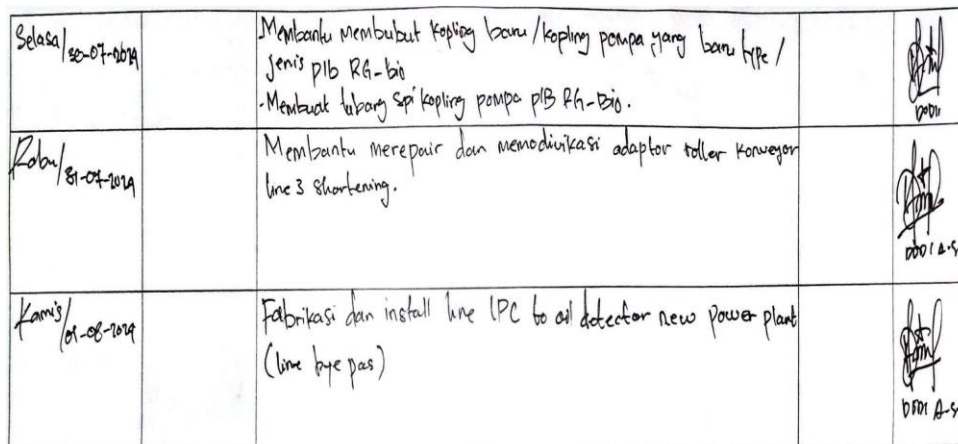 Selasa/30-07-2024
Membantu membubut kopling baru/kopling pompa yang baru type/
jenis pib RG-bio
-Membuat lubang spi kopling pompa pIB RG-Bio.
DODI
Rabu/31-07-2024
Membantu merepair dan memodivikasi adaptor roller konveyor
line 3 shortening.
DODI A.S
Kamis/01-08-2024
Fabrikasi dan install line LPC to oil detector new power plant
(line bye pas)
DODI A.S